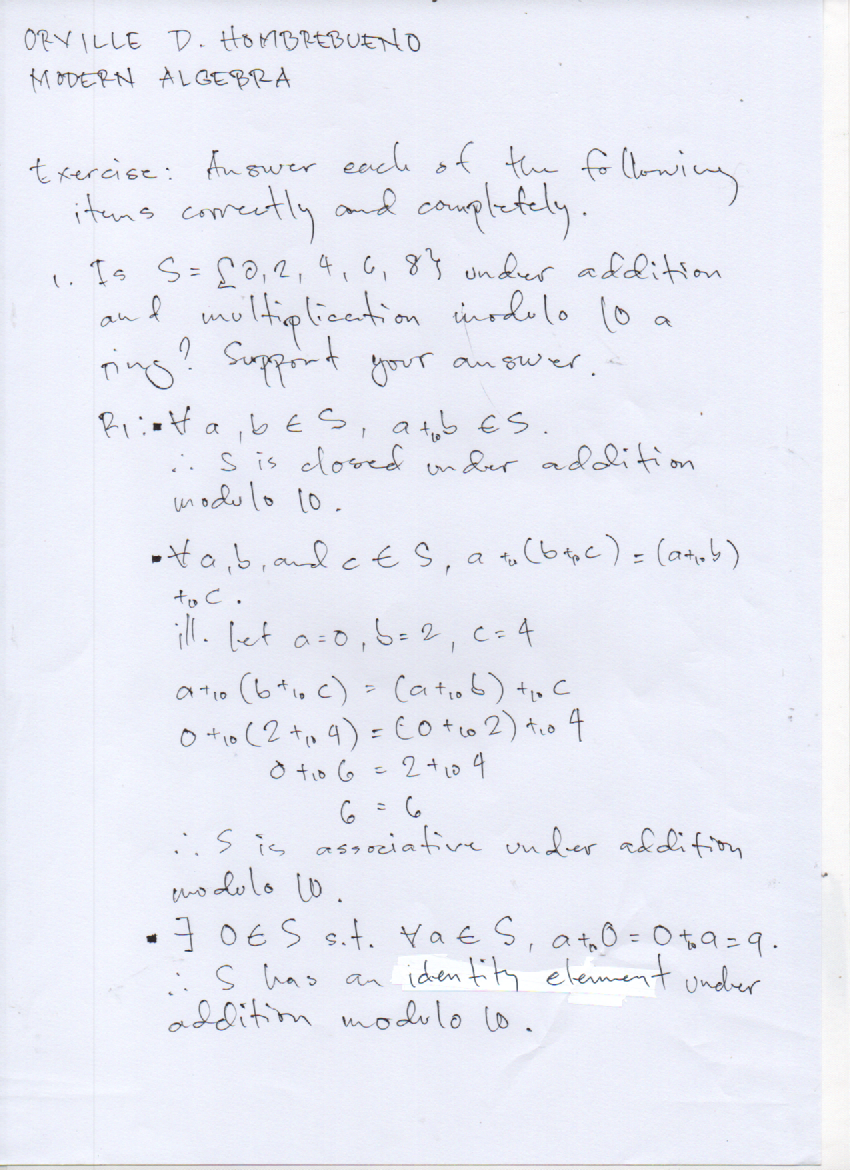 ORVILLE D. HOMBREBUENO
MODERN ALGEBRA
Exercise: Answer each of the following
items correctly and completely.
1. Is S = {0, 2, 4, 6, 8} under addition
and multiplication modulo 10 a
ring? Support your answer.
R₁: ▪ ∀ a, b ∈ S, a +₁₀ b ∈ S.
∴ S is closed under addition
modulo 10.
▪ ∀ a, b, and c ∈ S, a +₁₀ (b +₁₀ c) = (a +₁₀ b)
+₁₀ c.
ill. let a = 0, b = 2, c = 4
a +₁₀ (b +₁₀ c) = (a +₁₀ b) +₁₀ c
0 +₁₀ (2 +₁₀ 4) = (0 +₁₀ 2) +₁₀ 4
0 +₁₀ 6 = 2 +₁₀ 4
6 = 6
∴ S is associative under addition
modulo 10.
▪ ∃ 0 ∈ S s.t. ∀ a ∈ S, a +₁₀ 0 = 0 +₁₀ a = a.
∴ S has an identity element under
addition modulo 10.